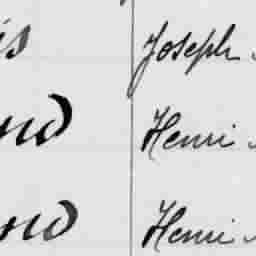 is Joseph
nd Henri
nd Henri